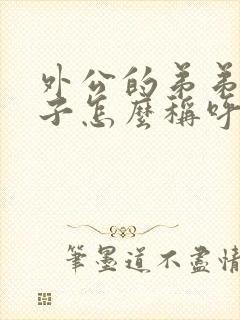 外公的弟弟
子怎麼稱呼
筆墨道不盡情